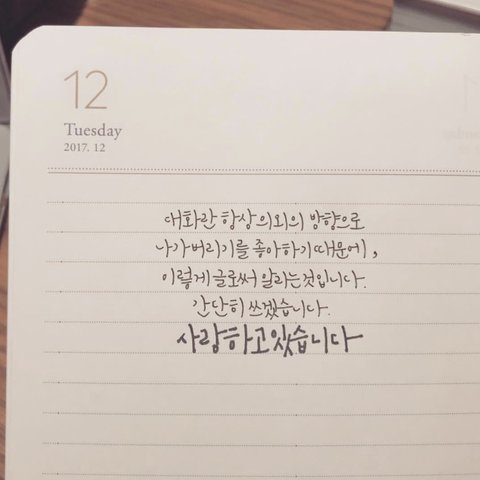 12
Tuesday
2017. 12
대화란 항상 의외의 방향으로
나가버리기를 좋아하기 때문에,
이렇게 글로써 알리는것입니다.
간단히 쓰겠습니다.
사랑하고있습니다